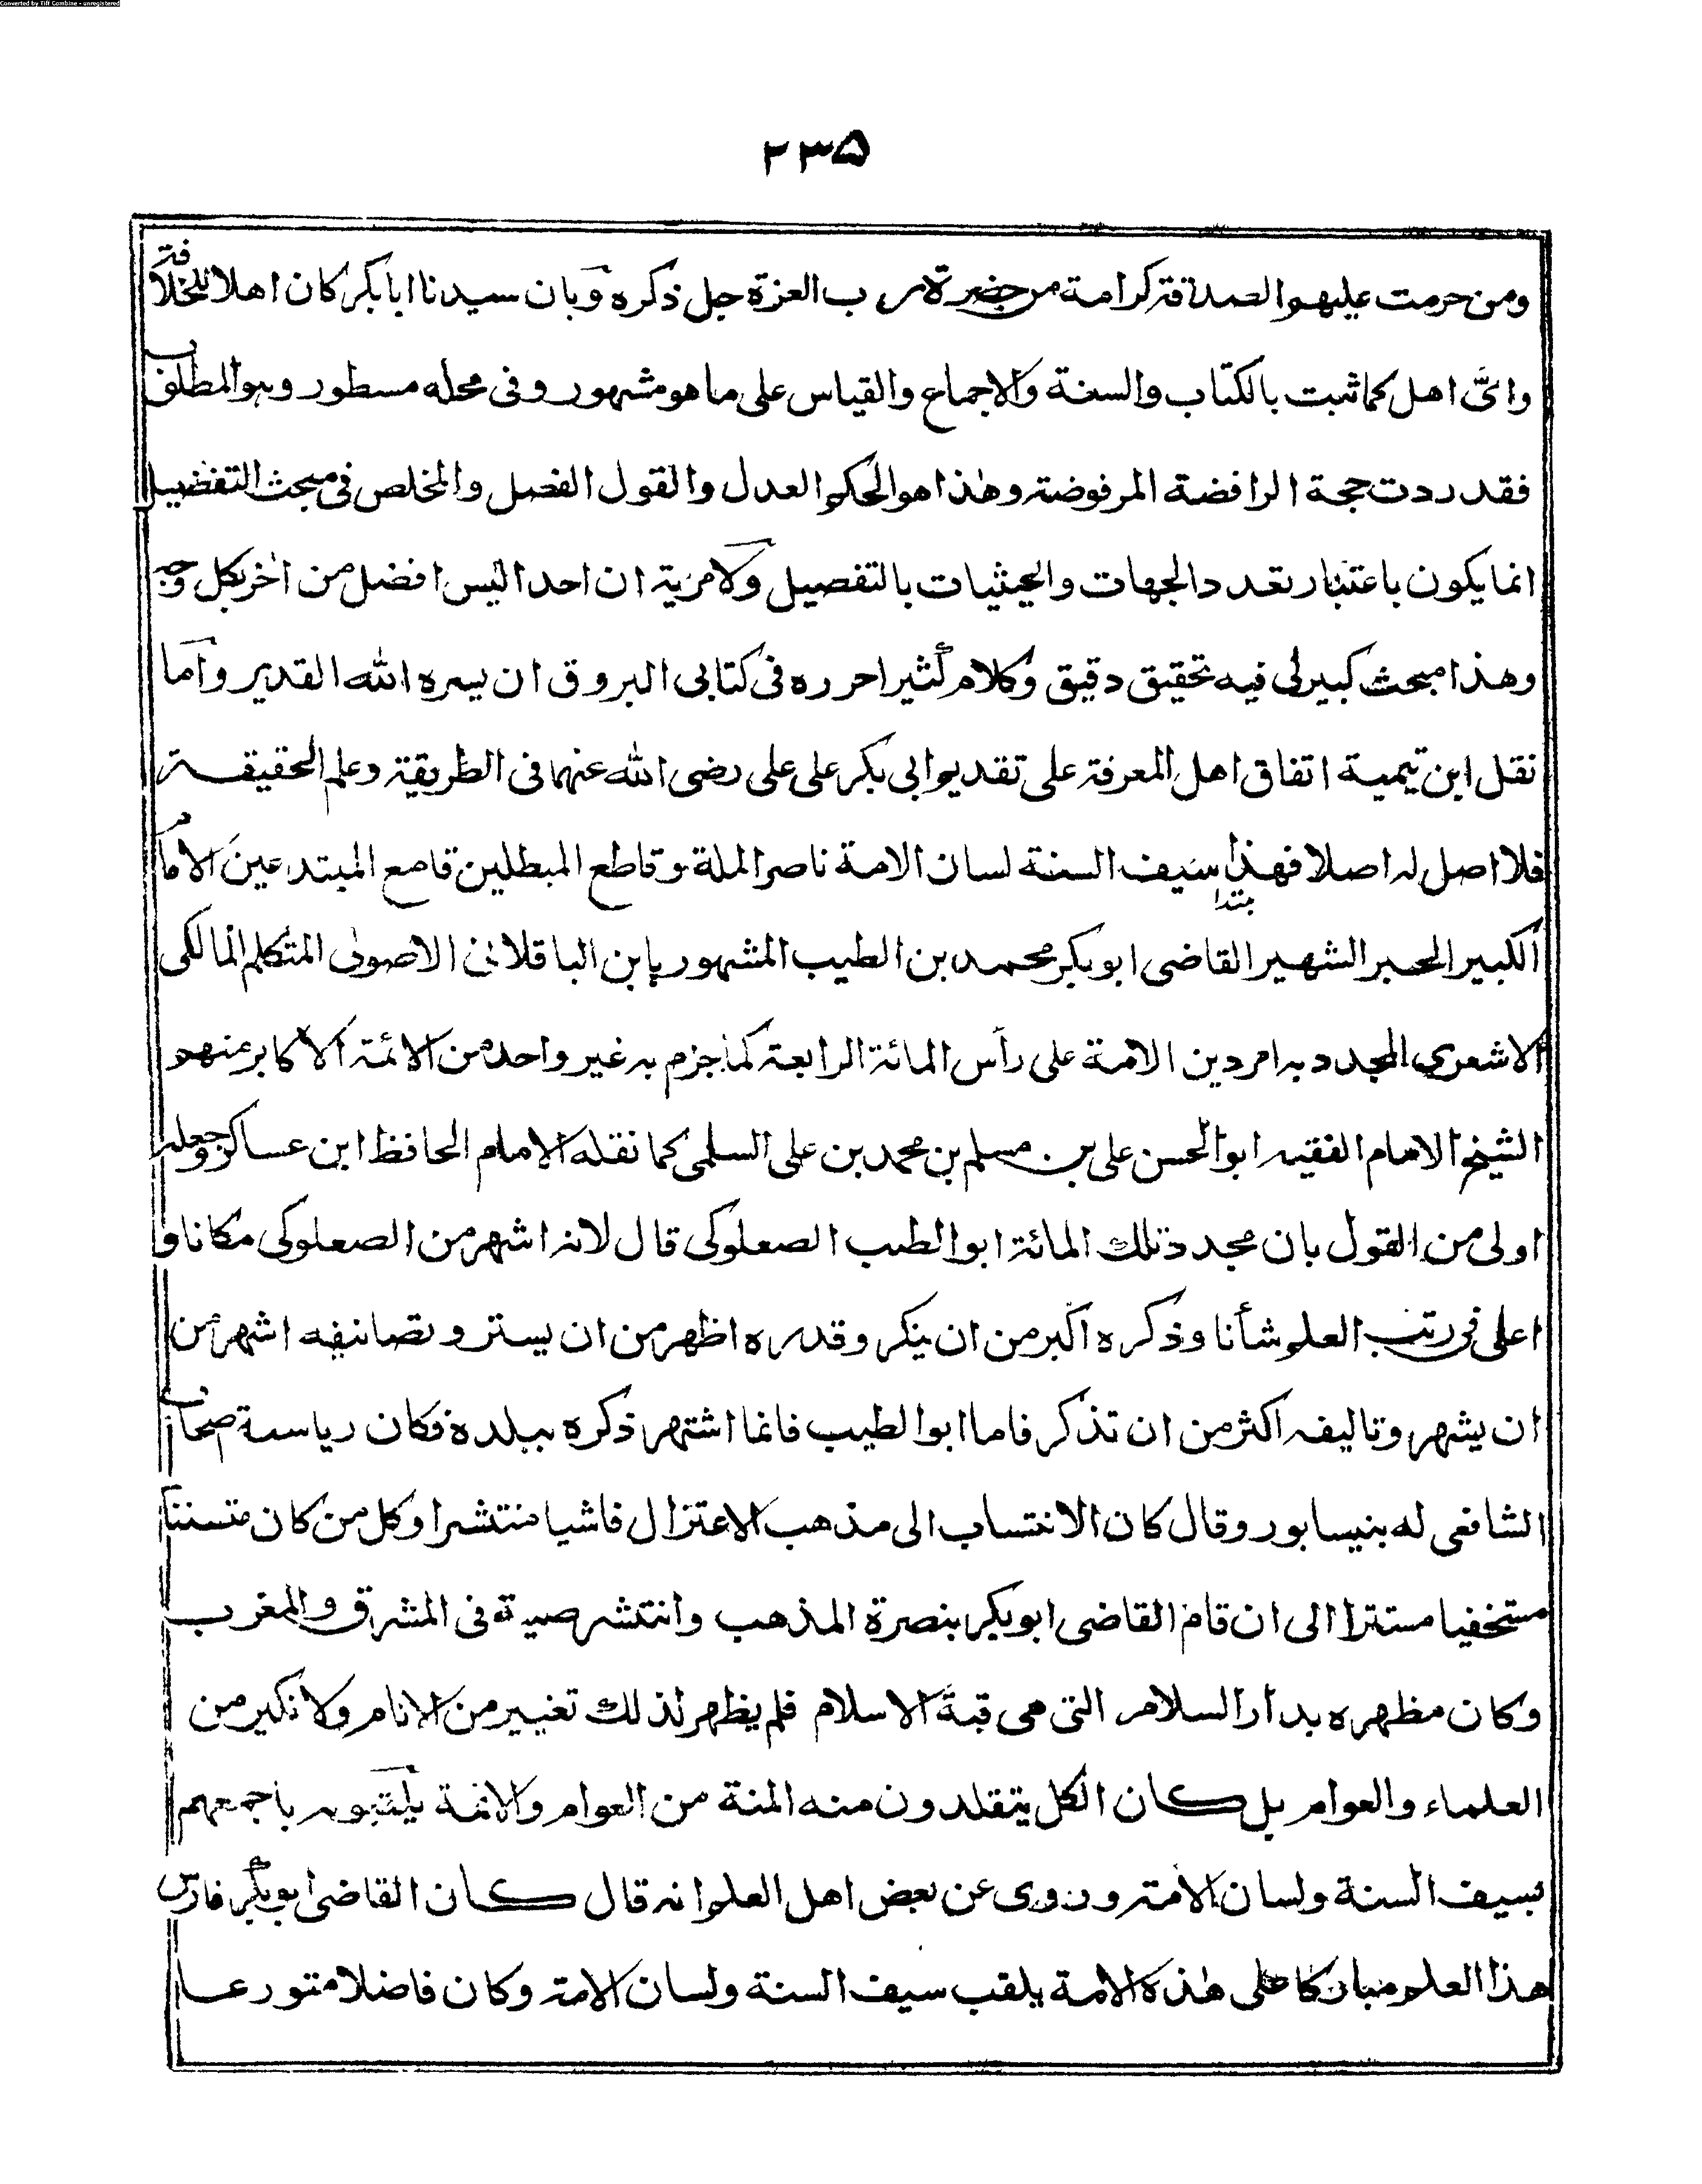 Converted by Tiff Combine - unregistered
۲۳۵
ومن حرمت عليهم الصدقة كرامة من حضرة رب العزة جل ذكره وبان سيدنا ابا بكر كان اهلا للخلافة
واىّ اهل كما ثبت بالكتاب والسنة والاجماع والقياس على ما هو مشهور وفى محله مسطور وهو المطلوب
فقد ردت حجة الرافضة المرفوضة وهذا هو الحكم العدل والقول الفصل والمخلص فى مبحث التفضيل
انما يكون باعتبار تعدد الجهات والحيثيات بالتفصيل ولا مزية ان احدا ليس افضل من اخر بكل وجه
وهذا مبحث كبير لى فيه تحقيق دقيق وكلام كثير احرره فى كتابى البروق ان يسره الله القدير واما
نقل ابن تيمية اتفاق اهل المعرفة على تقديم ابى بكر على على رضى الله عنهما فى الطريقة وعلم الحقيقة
فلا اصل له اصلا فهذا سيف السنة لسان الامة ناصر الملة وقاطع المبطلين قامع المبتدعين الامام
مبتدا
الكبير الحبر الشهير القاضى ابو بكر محمد بن الطيب المشهور بابن الباقلانى الاصولى المتكلم المالكى
الاشعرى المجدد به امر دين الامة على رأس المائة الرابعة كما جزم به غير واحد من الائمة الاكابر منهم
الشيخ الامام الفقيه ابو الحسن على بن مسلم بن محمد بن على السلمى كما نقله الامام الحافظ ابن عساكر وجعله
اولى من القول بان مجدد تلك المائة ابو الطيب الصعلوكى قال لانه اشهر من الصعلوكى مكانا و
اعلى فى رتب العلم شأنا وذكره اكبر من ان ينكر وقدره اظهر من ان يستر وتصانيفه اشهر من
ان يشهر وتاليفه اكثر من ان تذكر فاما ابو الطيب فانما اشتهر ذكره ببلده فكان رياسة اصحاب
الشافعى له بنيسابور وقال كان الانتساب الى مذهب الاعتزال فاشيا منتشرا وكل من كان متسننا
مستخفيا مستترا الى ان قام القاضى ابو بكر بنصرة المذهب وانتشر صيته فى المشرق والمغرب
وكان مظهره بدار السلام التى هى قبة الاسلام فلم يظهر لذلك تغيير من الانام ولا نكير من
العلماء والعوام بل كان الكل يتقلدون منه المنة من العوام والائمة يلقبونه باجمعهم
بسيف السنة ولسان الامة وروى عن بعض اهل العلم انه قال كان القاضى ابو بكر فارس
هذا العلم مباركا على هذه الامة يلقب سيف السنة ولسان الامة وكان فاضلا متورعا